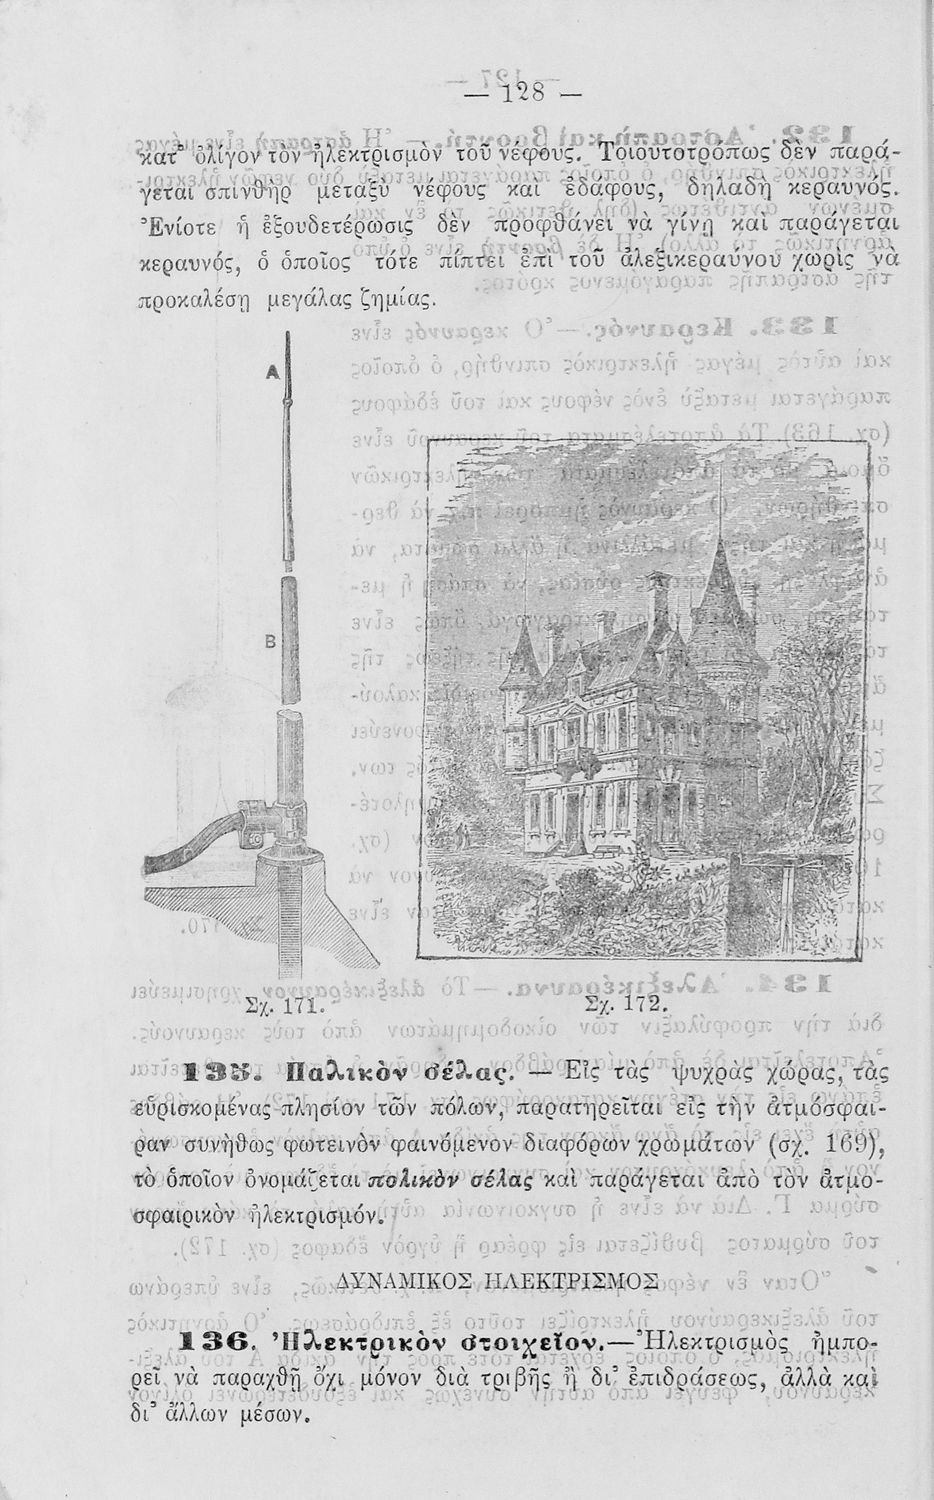 — 128 —
κατ' ὀλίγον τὸν ἠλεκτρισμὸν τοῦ νέφους. Τοιουτοτρόπως δὲν παρά-
γεται σπινθὴρ μεταξὺ νέφους καὶ ἐδάφους, δηλαδὴ κεραυνός.
Ἐνίοτε ἡ ἐξουδετέρωσις δὲν προφθάνει νὰ γίνῃ καὶ παράγεται
κεραυνός, ὁ ὁποῖος τότε πίπτει ἐπὶ τοῦ ἀλεξικεραύνου χωρὶς νὰ
προκαλέσῃ μεγάλας ζημίας.
A
B
Σχ. 171.
Σχ. 172.
135. Παλικὸν σέλας. — Εἰς τὰς ψυχρὰς χώρας, τὰς
εὑρισκομένας πλησίον τῶν πόλων, παρατηρεῖται εἰς τὴν ἀτμόσφαι-
ραν συνήθως φωτεινὸν φαινόμενον διαφόρων χρωμάτων (σχ. 169),
τὸ ὁποῖον ὀνομάζεται πολικὸν σέλας καὶ παράγεται ἀπὸ τὸν ἀτμο-
σφαιρικὸν ἠλεκτρισμόν.
ΔΥΝΑΜΙΚΟΣ ΗΛΕΚΤΡΙΣΜΟΣ
136. Ἠλεκτρικὸν στοιχεῖον. — Ἠλεκτρισμὸς ἠμπο-
ρεῖ νὰ παραχθῇ ὄχι μόνον διὰ τριβῆς ἢ δι' ἐπιδράσεως, ἀλλὰ καὶ
δι' ἄλλων μέσων.